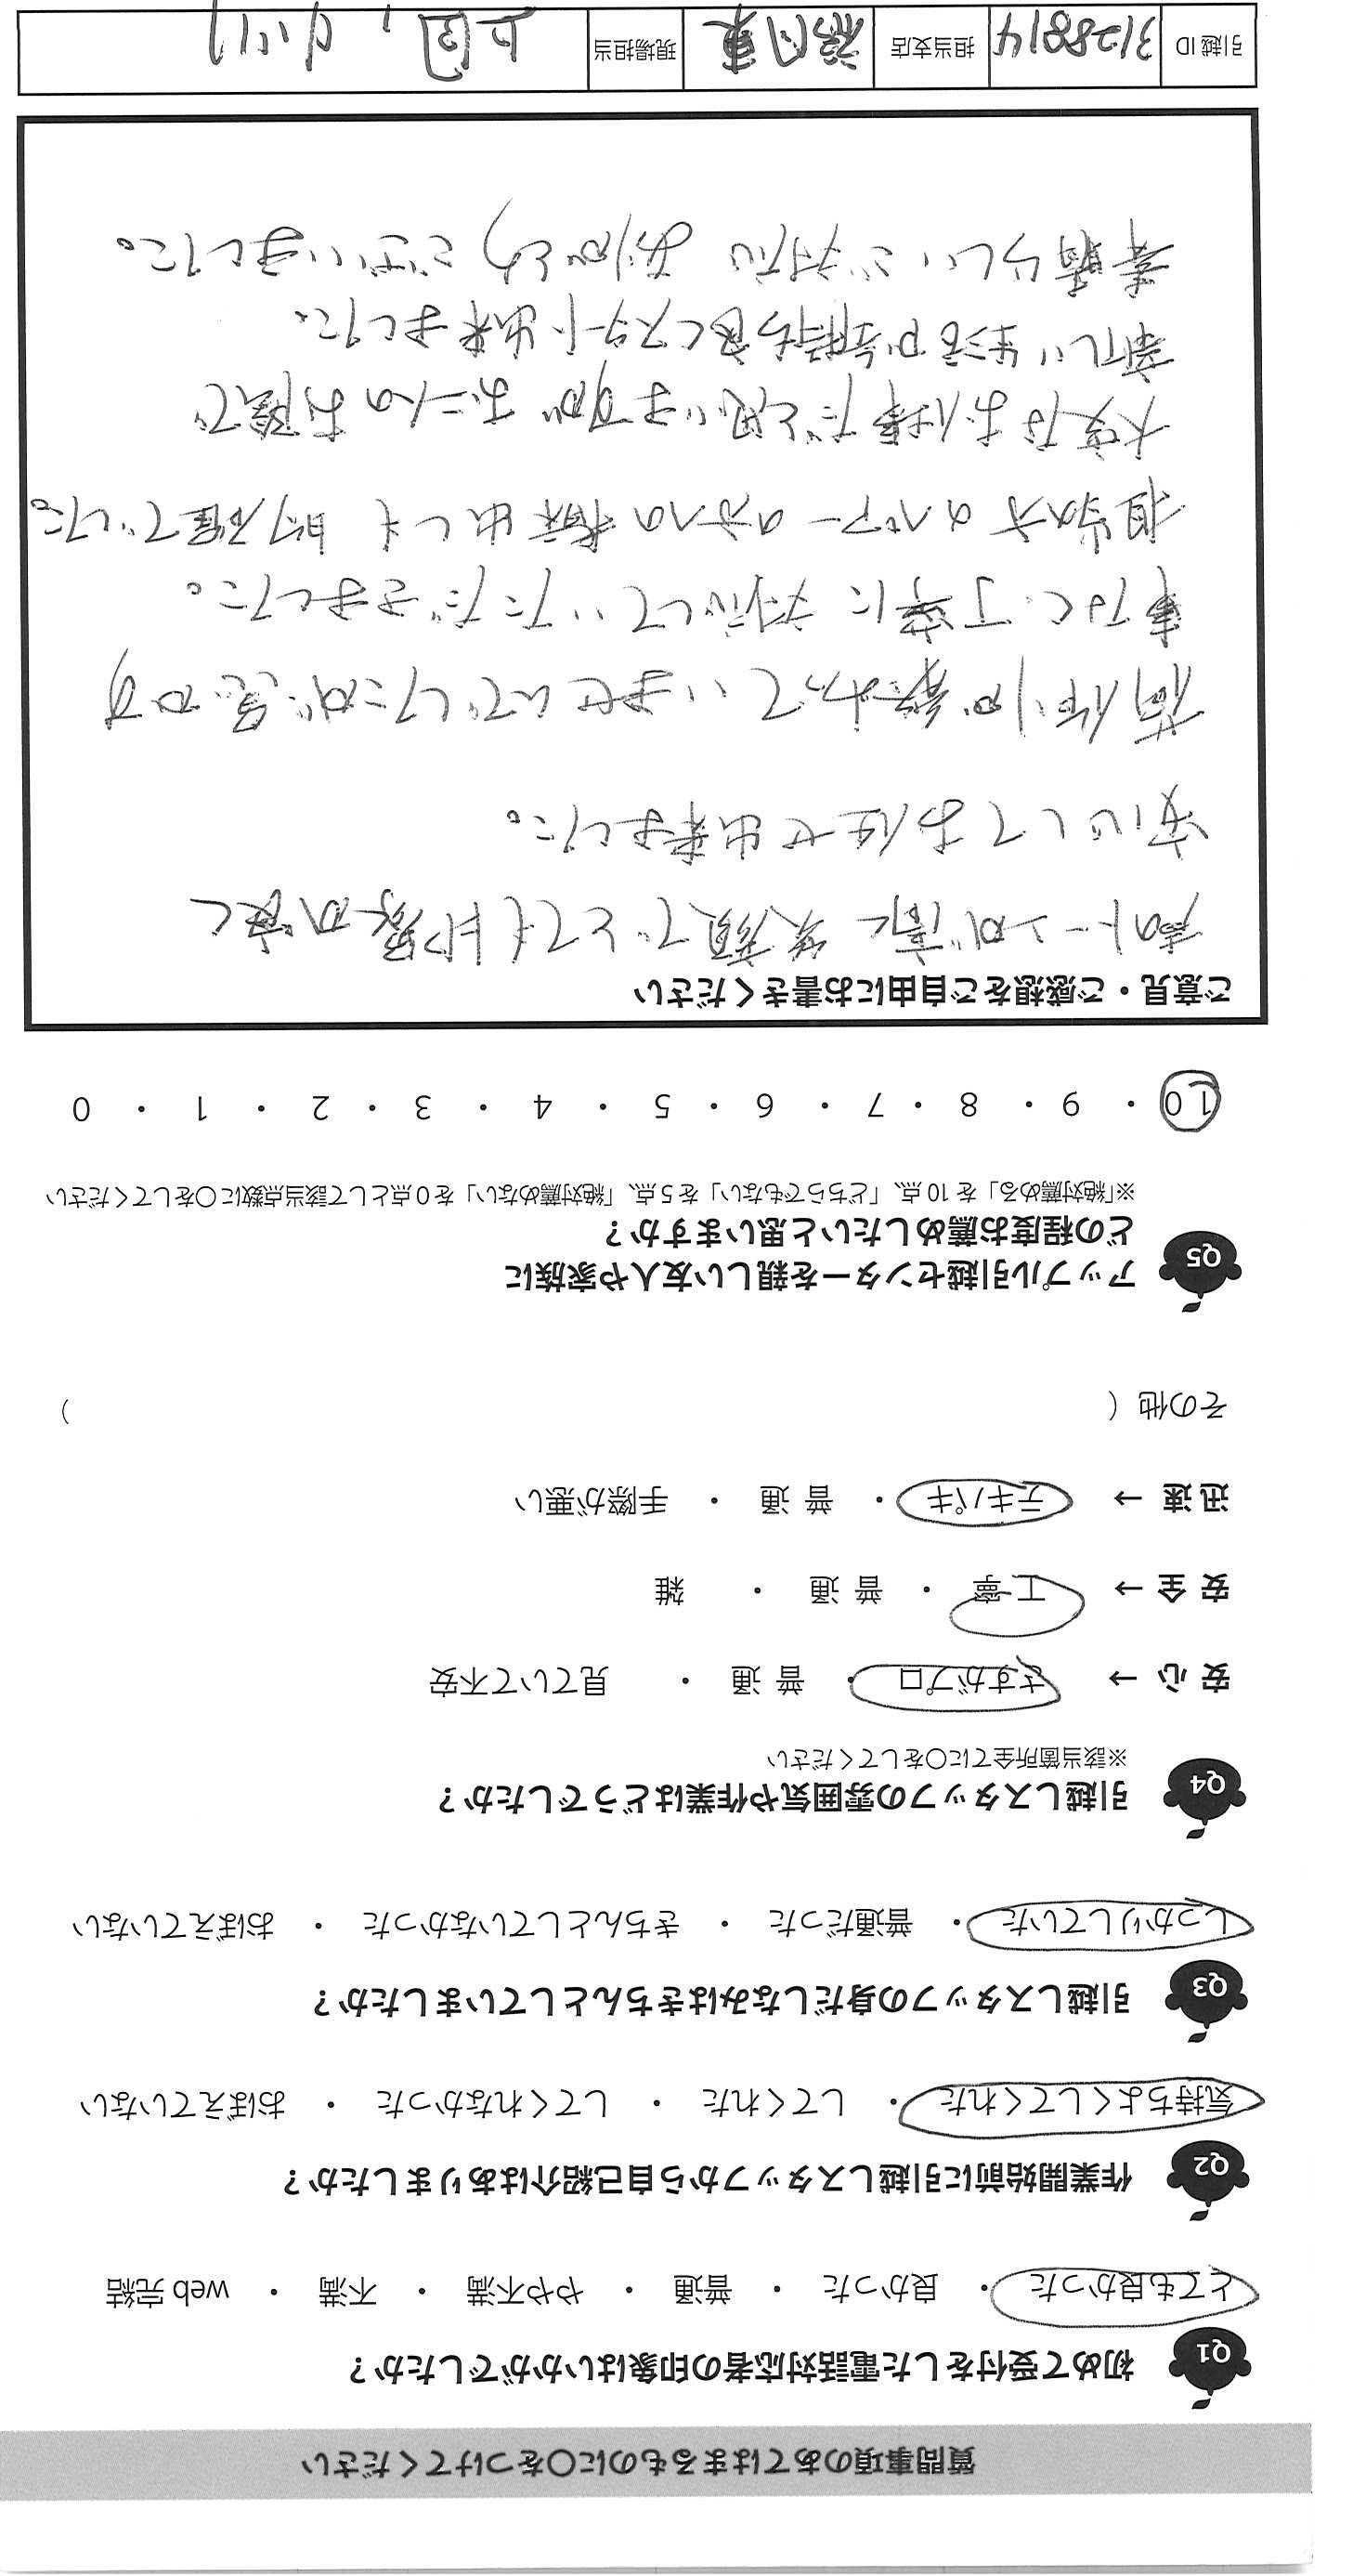 質問事項のあてはまるものに○をつけてください
Q1 初めて受付をした電話対応者の印象はいかがでしたか？
とても良かった ・ 良かった ・ 普通 ・ やや不満 ・ 不満 ・ web 完結
Q2 作業開始前に引越しスタッフから自己紹介はありましたか？
気持ちよくしてくれた ・ してくれた ・ してくれなかった ・ おぼえていない
Q3 引越しスタッフの身だしなみはきちんとしていましたか？
しっかりしていた ・ 普通だった ・ きちんとしていなかった ・ おぼえていない
Q4 引越しスタッフの雰囲気や作業はどうでしたか？
※該当箇所全てに○をしてください
安 心 → さすがプロ ・ 普 通 ・ 見ていて不安
安 全 → 丁 寧 ・ 普 通 ・ 雑
迅 速 → テキパキ ・ 普 通 ・ 手際が悪い
その他（ ）
Q5 アップル引越センターを親しい友人や家族に
どの程度お薦めしたいと思いますか？
※「絶対薦める」を 10 点、「どちらでもない」を 5 点、「絶対薦めない」を 0 点として該当点数に○をしてください
10 ・ 9 ・ 8 ・ 7 ・ 6 ・ 5 ・ 4 ・ 3 ・ 2 ・ 1 ・ 0
ご意見・ご感想をご自由にお書きください
声のトーンが高く 笑顔でとても印象が良く
安心してお任せ出来ました。
荷作りが終わっていませんでしたが 急かす
事なく、丁寧に対応していただきました。
担当の方のペアーの方への指示出しも 的確でした。
大変なお仕事だと思いますが お二人のお陰で
新しい生活が気持ち良くスタート出来ました。
素晴らしいご対応 ありがとうございました。
引越 ID 3128814 担当支店 福岡東 現場担当